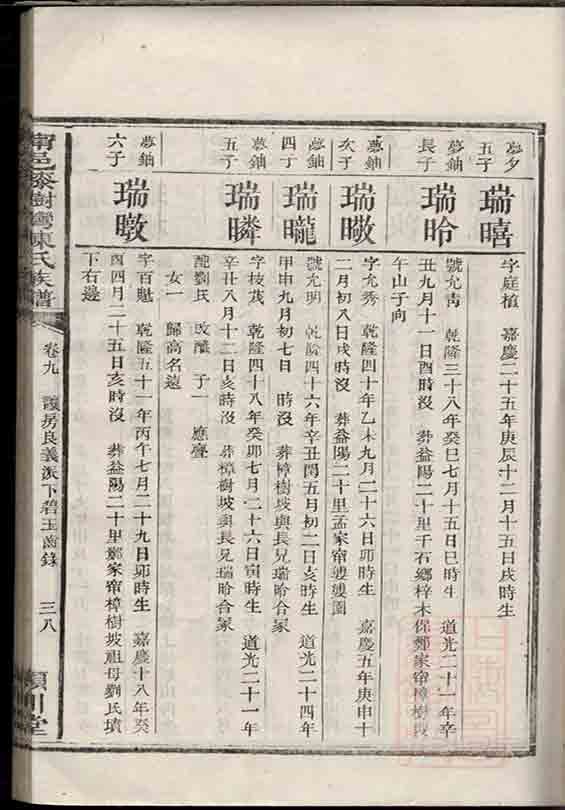 夢夕五子
瑞暿
字庭植 嘉慶二十五年庚辰十二月十五日戌時生
夢鈾長子
瑞昤
號允靑 乾隆三十八年癸巳七月十五日巳時生 道光二十一年辛
丑九月十一日酉時沒 葬益陽二十里千石鄉梓木保鄭家帘樟樹坡
午山子向
夢鈾次子
瑞暾
字允秀 乾隆四十年乙未九月二十六日卯時生 嘉慶五年庚申十
二月初八日戌時沒 葬益陽二十里孟家帘䕫䕫園
夢鈾四丁
瑞曨
號允明 乾隆四十六年辛丑閏五月初二日亥時生 道光二十四年
甲申九月初七日 時沒 葬樟樹坡與長兄瑞昤合冢
夢鈾五子
瑞暽
字枝茂 乾隆四十八年癸卯七月二十六日寅時生 道光二十一年
辛丑八月十二日亥時沒 葬樟樹坡與長兄瑞昤合冢
配劉氏 改醮 子一 應
女一 歸高名遠
夢鈾六子
瑞暾
字百魁 乾隆五十一年丙午七月二十九日卯時生 嘉慶十八年癸
酉四月二十五日亥時沒 葬益陽二十里鄭家帘樟樹坡祖母劉氏墳
下右邊
甯邑漆樹灣陳氏族譜
卷九 護房良義派下碧玉齒錄 三八
潁川堂